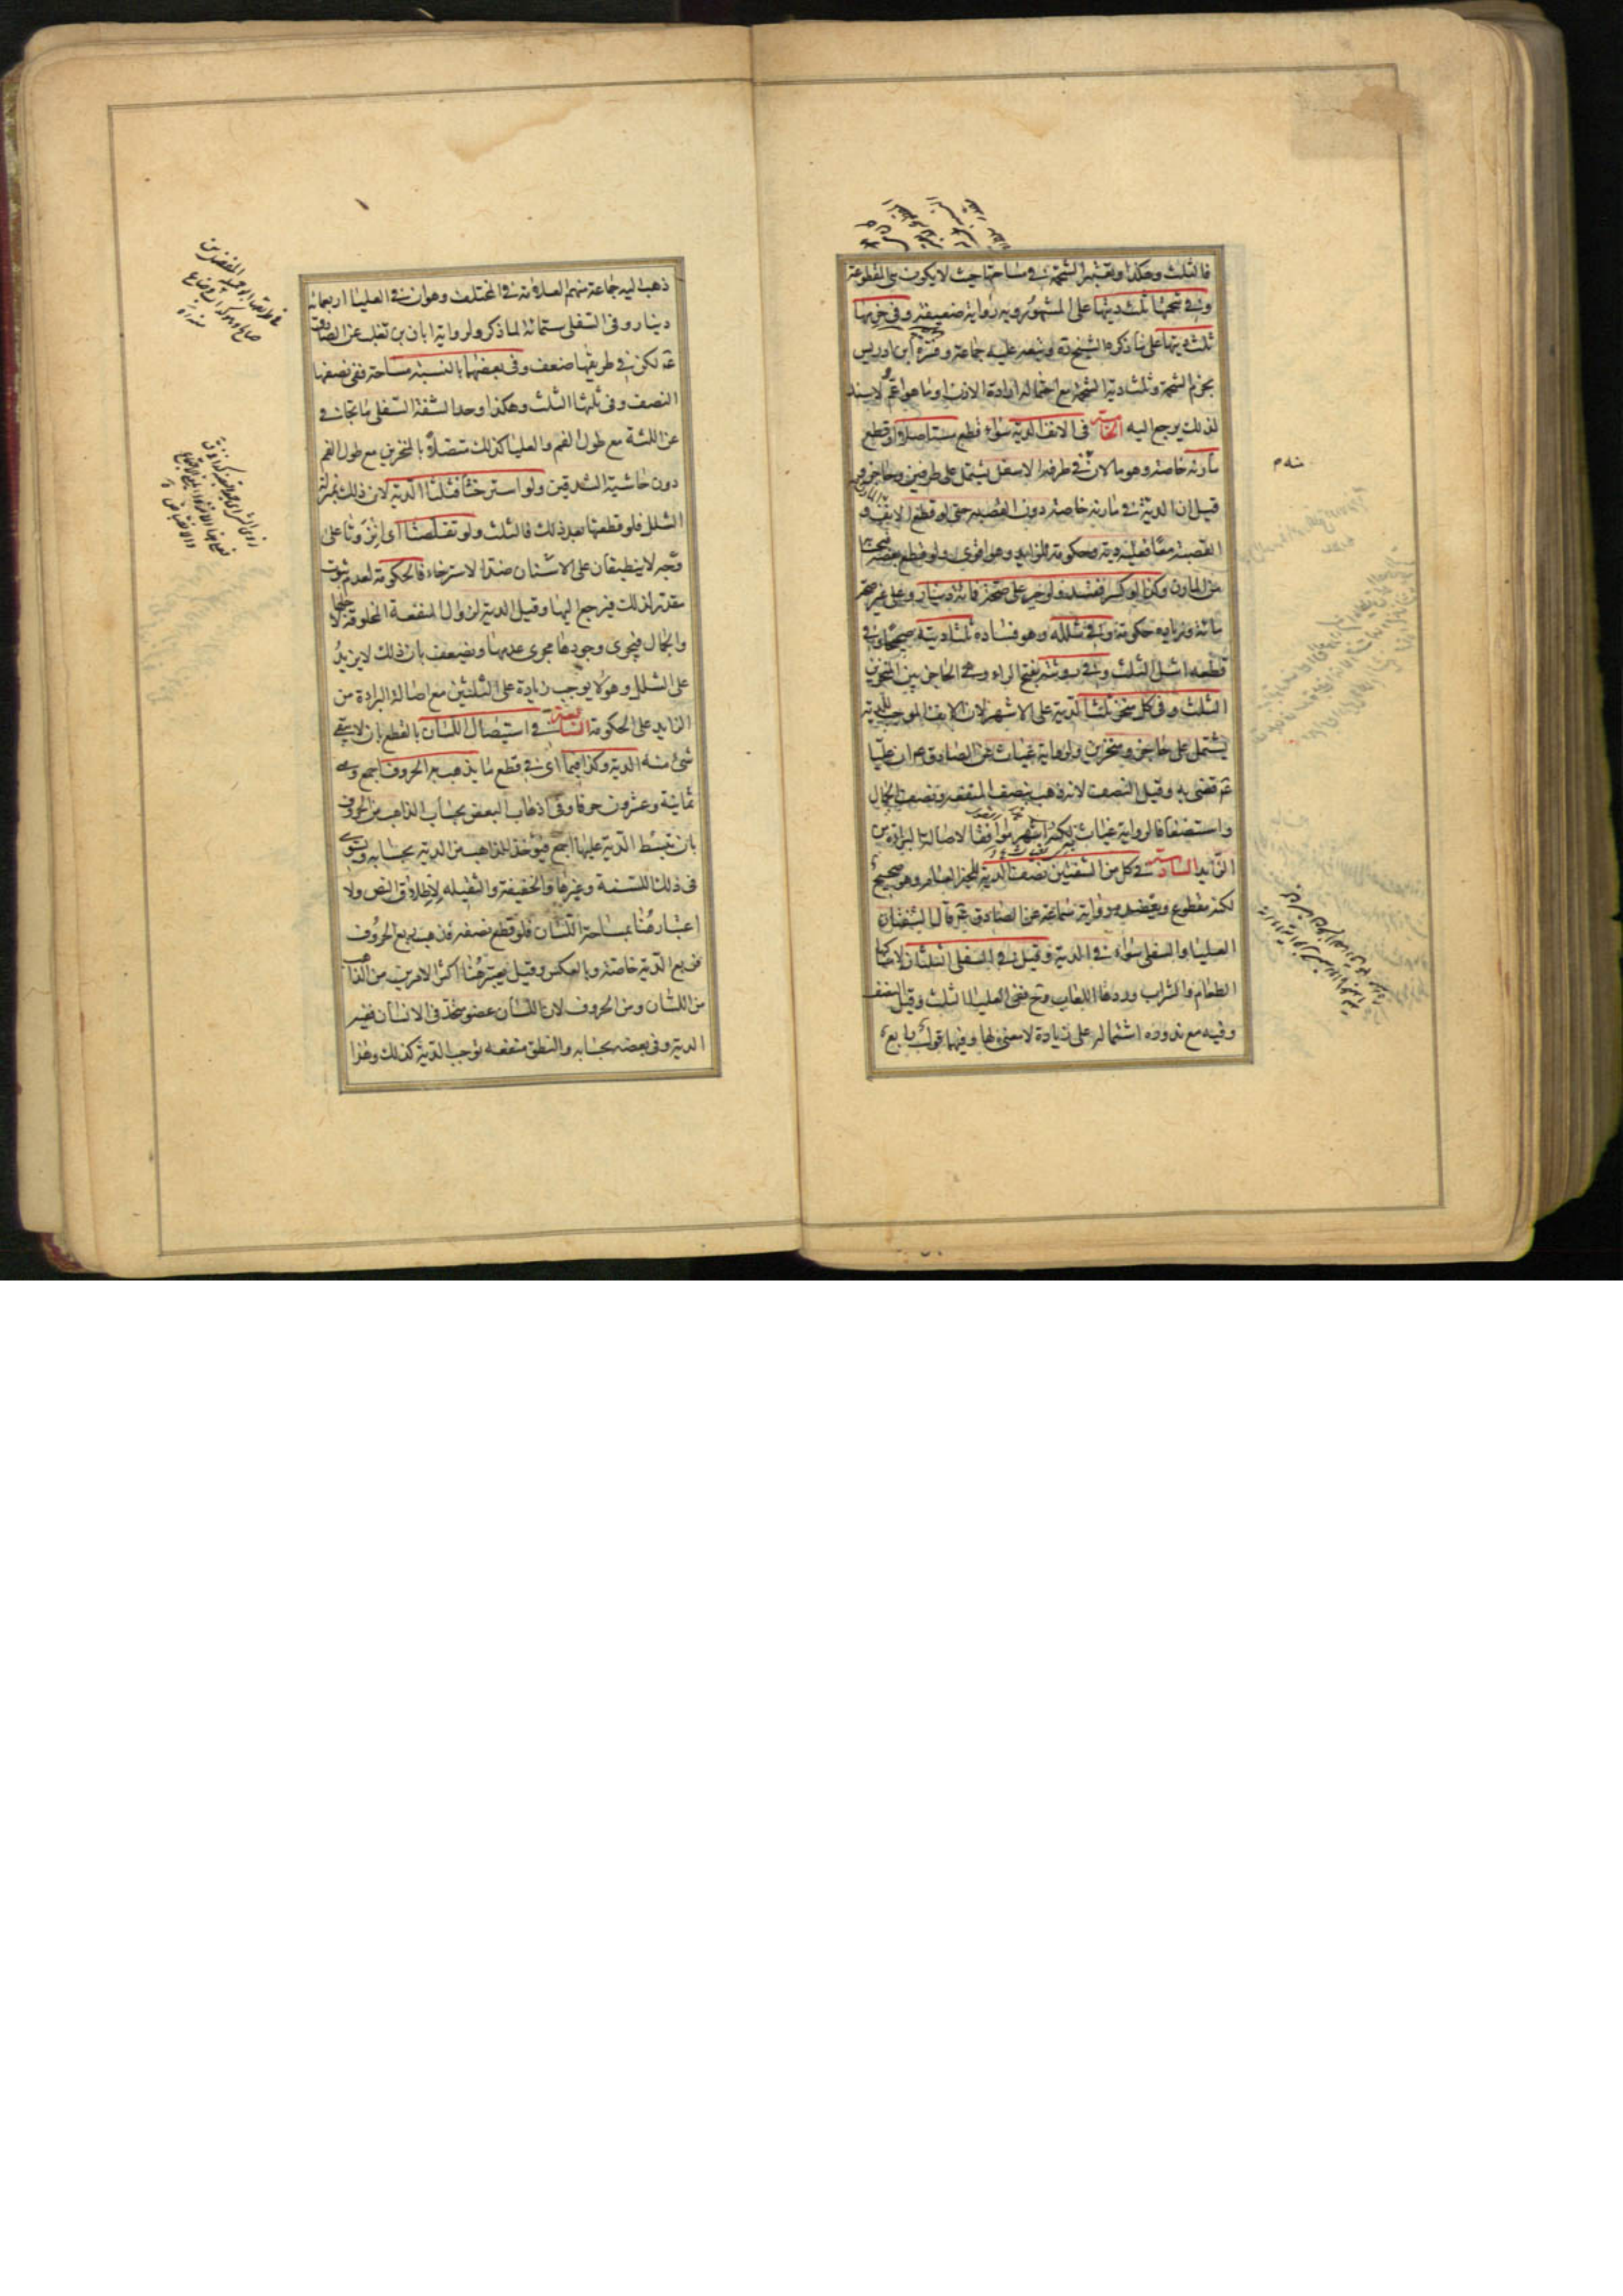 فالثلث وهكذا وتعتبر الشحمة في مساحتها حيث لا يكون هي المقطوعة
وفي شحمتها ثلث ديتها على المشهور وبه رواية ضعيفة وفي خرمها
ثلث ديتها على ما ذكره الشيخ ره وتبعه عليه جماعة وفسره ابن ادريس
بخرم الشحمة وثلث دية الشحمة مع احتماله ارادة الاذن او ما هو اعم ولا سند
لذلك يرجع اليه الخامسة في الانف الدية سواء قطع مستأصلا او قطع
مارنه خاصة وهو ما لان في طرفه الاسفل يشتمل على طرفين وحاجز و
قيل ان الدية في مارنه خاصة دون القصبة حتى لو قطع الانف و
القصبة معا فعليه دية وحكومة للزايد وهو اقوى ولو قطع بعضه
من المارن وكذا لو كسر ففسد فلو جبر على صحة فمائة دينار وعلى غير صحة
مائة وزيادة حكومة وفي شلله وهو فساده ثلثا ديته صحيحا وفي
قطعه اشل الثلث وفي روثته بفتح الراء وهي الحاجز بين المنخرين
الثلث وفي كل منخر ثلث الدية على الاشهر لان الانف الموجب للدية
يشتمل على حاجز ومنخرين ولرواية غياث عن الصادق ع ان عليا
ع قضى به وقيل النصف لانه ذهب بنصف المنفعة ونصف الجمال
واستضعافا لرواية غياث لكنه اشهر موافقا لاصالة البراءة من
الزايد السادسة في كل من الشفتين نصف الدية للخبر العام وهو صحيح
لكنه مقطوع ويعضده رواية سماعة عن الصادق ع قال الشفتان
العليا والسفلى سواء في الدية وقيل في السفلى الثلثان لامساكها
الطعام والشراب وردها اللعاب وح ففي العليا الثلث وقيل النصف
وفيه مع ندوره اشتماله على زيادة لا معنى لها وفيهما قول رابع
منه ره
ذهب اليه جماعة منهم العلامة في المختلف وهو ان في العليا اربعمائة
دينار وفي السفلى ستمائة لما ذكر ولرواية ابان بن تغلب عن الصادق
ع لكن في طريقها ضعف وفي بعضها بالنسبة مساحة ففي نصفها
النصف وفي ثلثها الثلث وهكذا وحد الشفة السفلى ما تجافى
عن اللثة مع طول الفم والعليا كذلك متصلا بالمنخرين مع طول الفم
دون حاشية الشدقين ولو استرختا فثلثا الدية لان ذلك بمنزلة
الشلل فلو قطعها بعد ذلك فالثلث ولو تقلصتا اي انزوتا على
وجه لا ينطبقان على الاسنان ضد الاسترخاء فالحكومة لعدم ثبوت
مقدر لذلك فيرجع اليها وقيل الدية لزوال المنفعة المخلوقة لاجلها
والجمال فيجري وجودها مجرى عدمها ويضعف بان ذلك لا يزيد
على الشلل وهو لا يوجب زيادة على الثلثين مع اصالة البراءة من
الزايد على الحكومة السابعة في استيصال اللسان بالقطع بان لا يبقى
شيء منه الدية وكذا فيما اي في قطع ما يذهب به الحروف اجمع وهي
ثمانية وعشرون حرفا وفي اذهاب البعض بحساب الذاهب من الحروف
بان تبسط الدية عليها اجمع فيؤخذ للذاهب من الدية بحسابه ويستوي
في ذلك اللسنية وغيرها والخفيفة والثقيلة لاطلاق النص ولا
اعتبار هنا بمساحة اللسان فلو قطع نصفه فذهب ربع الحروف
فربع الدية خاصة وبالعكس وقيل يعتبر هنا اكثر الامرين من الذاهب
من اللسان ومن الحروف لان اللسان عضو متحد في الانسان ففيه
الدية وفي بعضه بحسابه والنطق منفعة توجب الدية كذلك وهذا